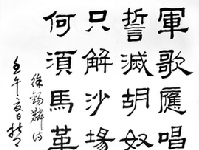 軍歌應唱
誓滅胡奴
只解沙場
何須馬革
徐錫麟詩
壬午夏日